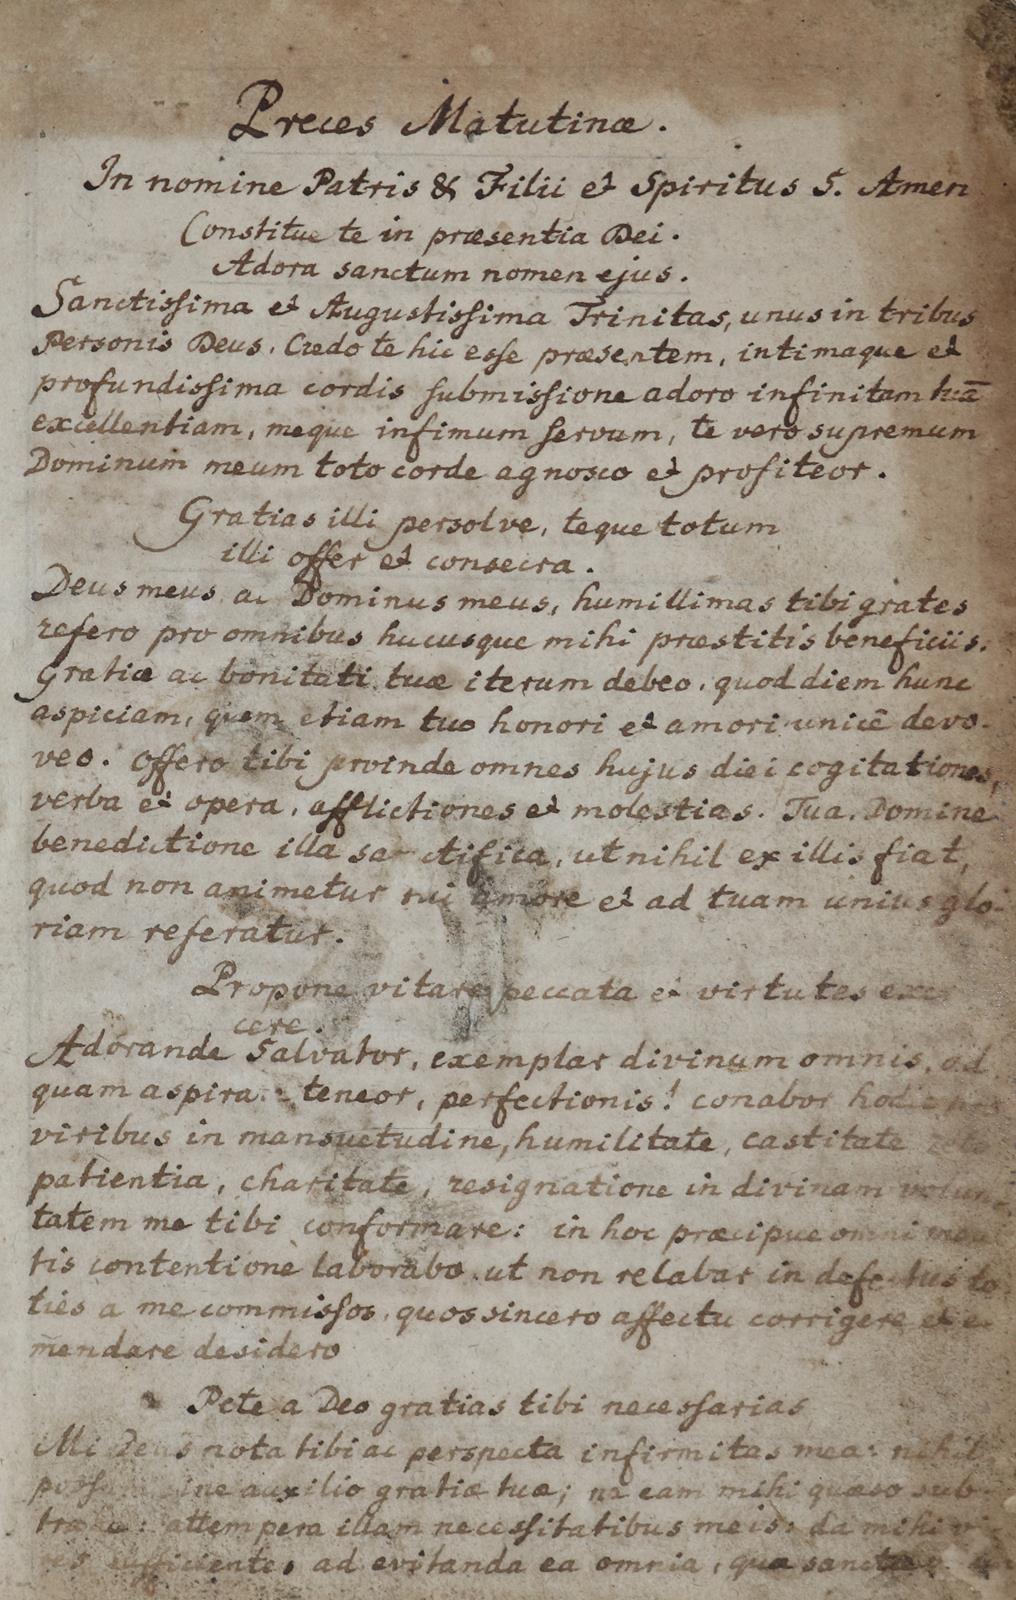 Preces Matutinæ.
In nomine Patris & Filii et Spiritus S. Amen
Constitue te in præsentia Dei.
Adora sanctum nomen ejus.
Sanctissima et Augustissima Trinitas, unus in tribus
Personis Deus. Credo te hic esse præsentem, intimaque et
profundissima cordis submissione adoro infinitam tuā
excellentiam, meque infimum servum, te vero supremum
Dominum meum toto corde agnosco et profiteor.
Gratias illi persolve, teque totum
illi offer et consecra.
Deus meus ac Dominus meus, humillimas tibi grates
refero pro omnibus hucusque mihi præstitis beneficiis.
Gratiæ ac bonitati tuæ iterum debeo, quod diem hunc
aspiciam, quem etiam tuo honori et amori unicē devo-
veo. Offero tibi proinde omnes hujus diei cogitationes,
verba et opera, afflictiones et molestias. Tua, Domine
benedictione illa sanctifica, ut nihil ex illis fiat,
quod non animetur tui amore et ad tuam unius glo-
riam referatur.
Propone vitare peccata et virtutes exer
cere.
Adorande Salvator, exemplar divinum omnis, ad
quam aspirare teneor, perfectionis! conabor hodie
viribus in mansuetudine, humilitate, castitate
patientia, charitate, resignatione in divinam volun-
tatem me tibi conformare: in hoc præcipue omni men
tis contentione laborabo, ut non relabar in defectus to
ties a me commissos, quos sincero affectu corrigere et e-
mendare desidero
Pete a Deo gratias tibi necessarias
Mi Deus nota tibi ac perspecta infirmitas mea: nihil
possum sine auxilio gratiæ tuæ; ne eam mihi quæso sub-
trahe: attempera illam necessitatibus meis: da mihi vi-
res sufficientes ad evitanda ea omnia, quæ sanctæ